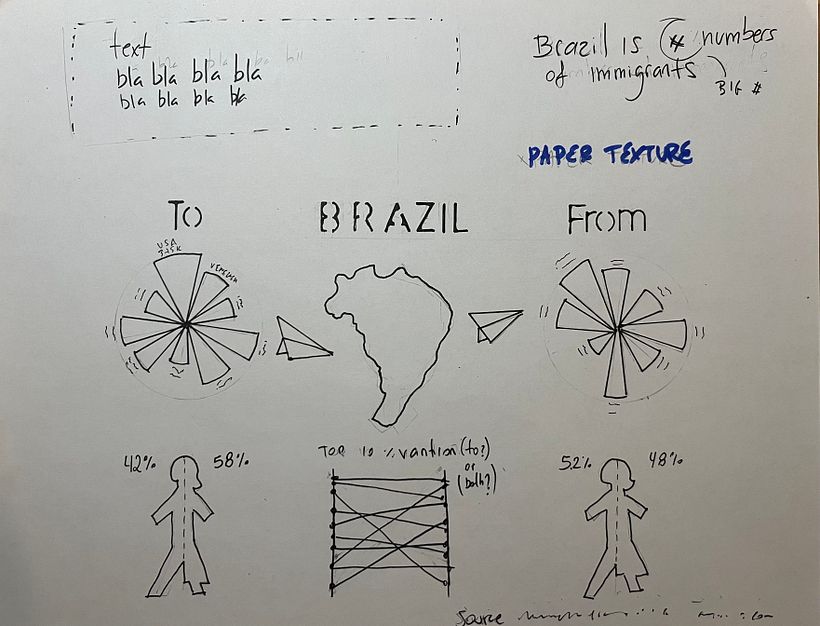 text
bla bla bla bla
bla bla bla bla
Brazil is # numbers
of immigrants
BIG #
PAPER TEXTURE
To
BRAZIL
From
USA
42% 58%
TOP 10 % (to?)
or
(both?)
52% 48%
Source